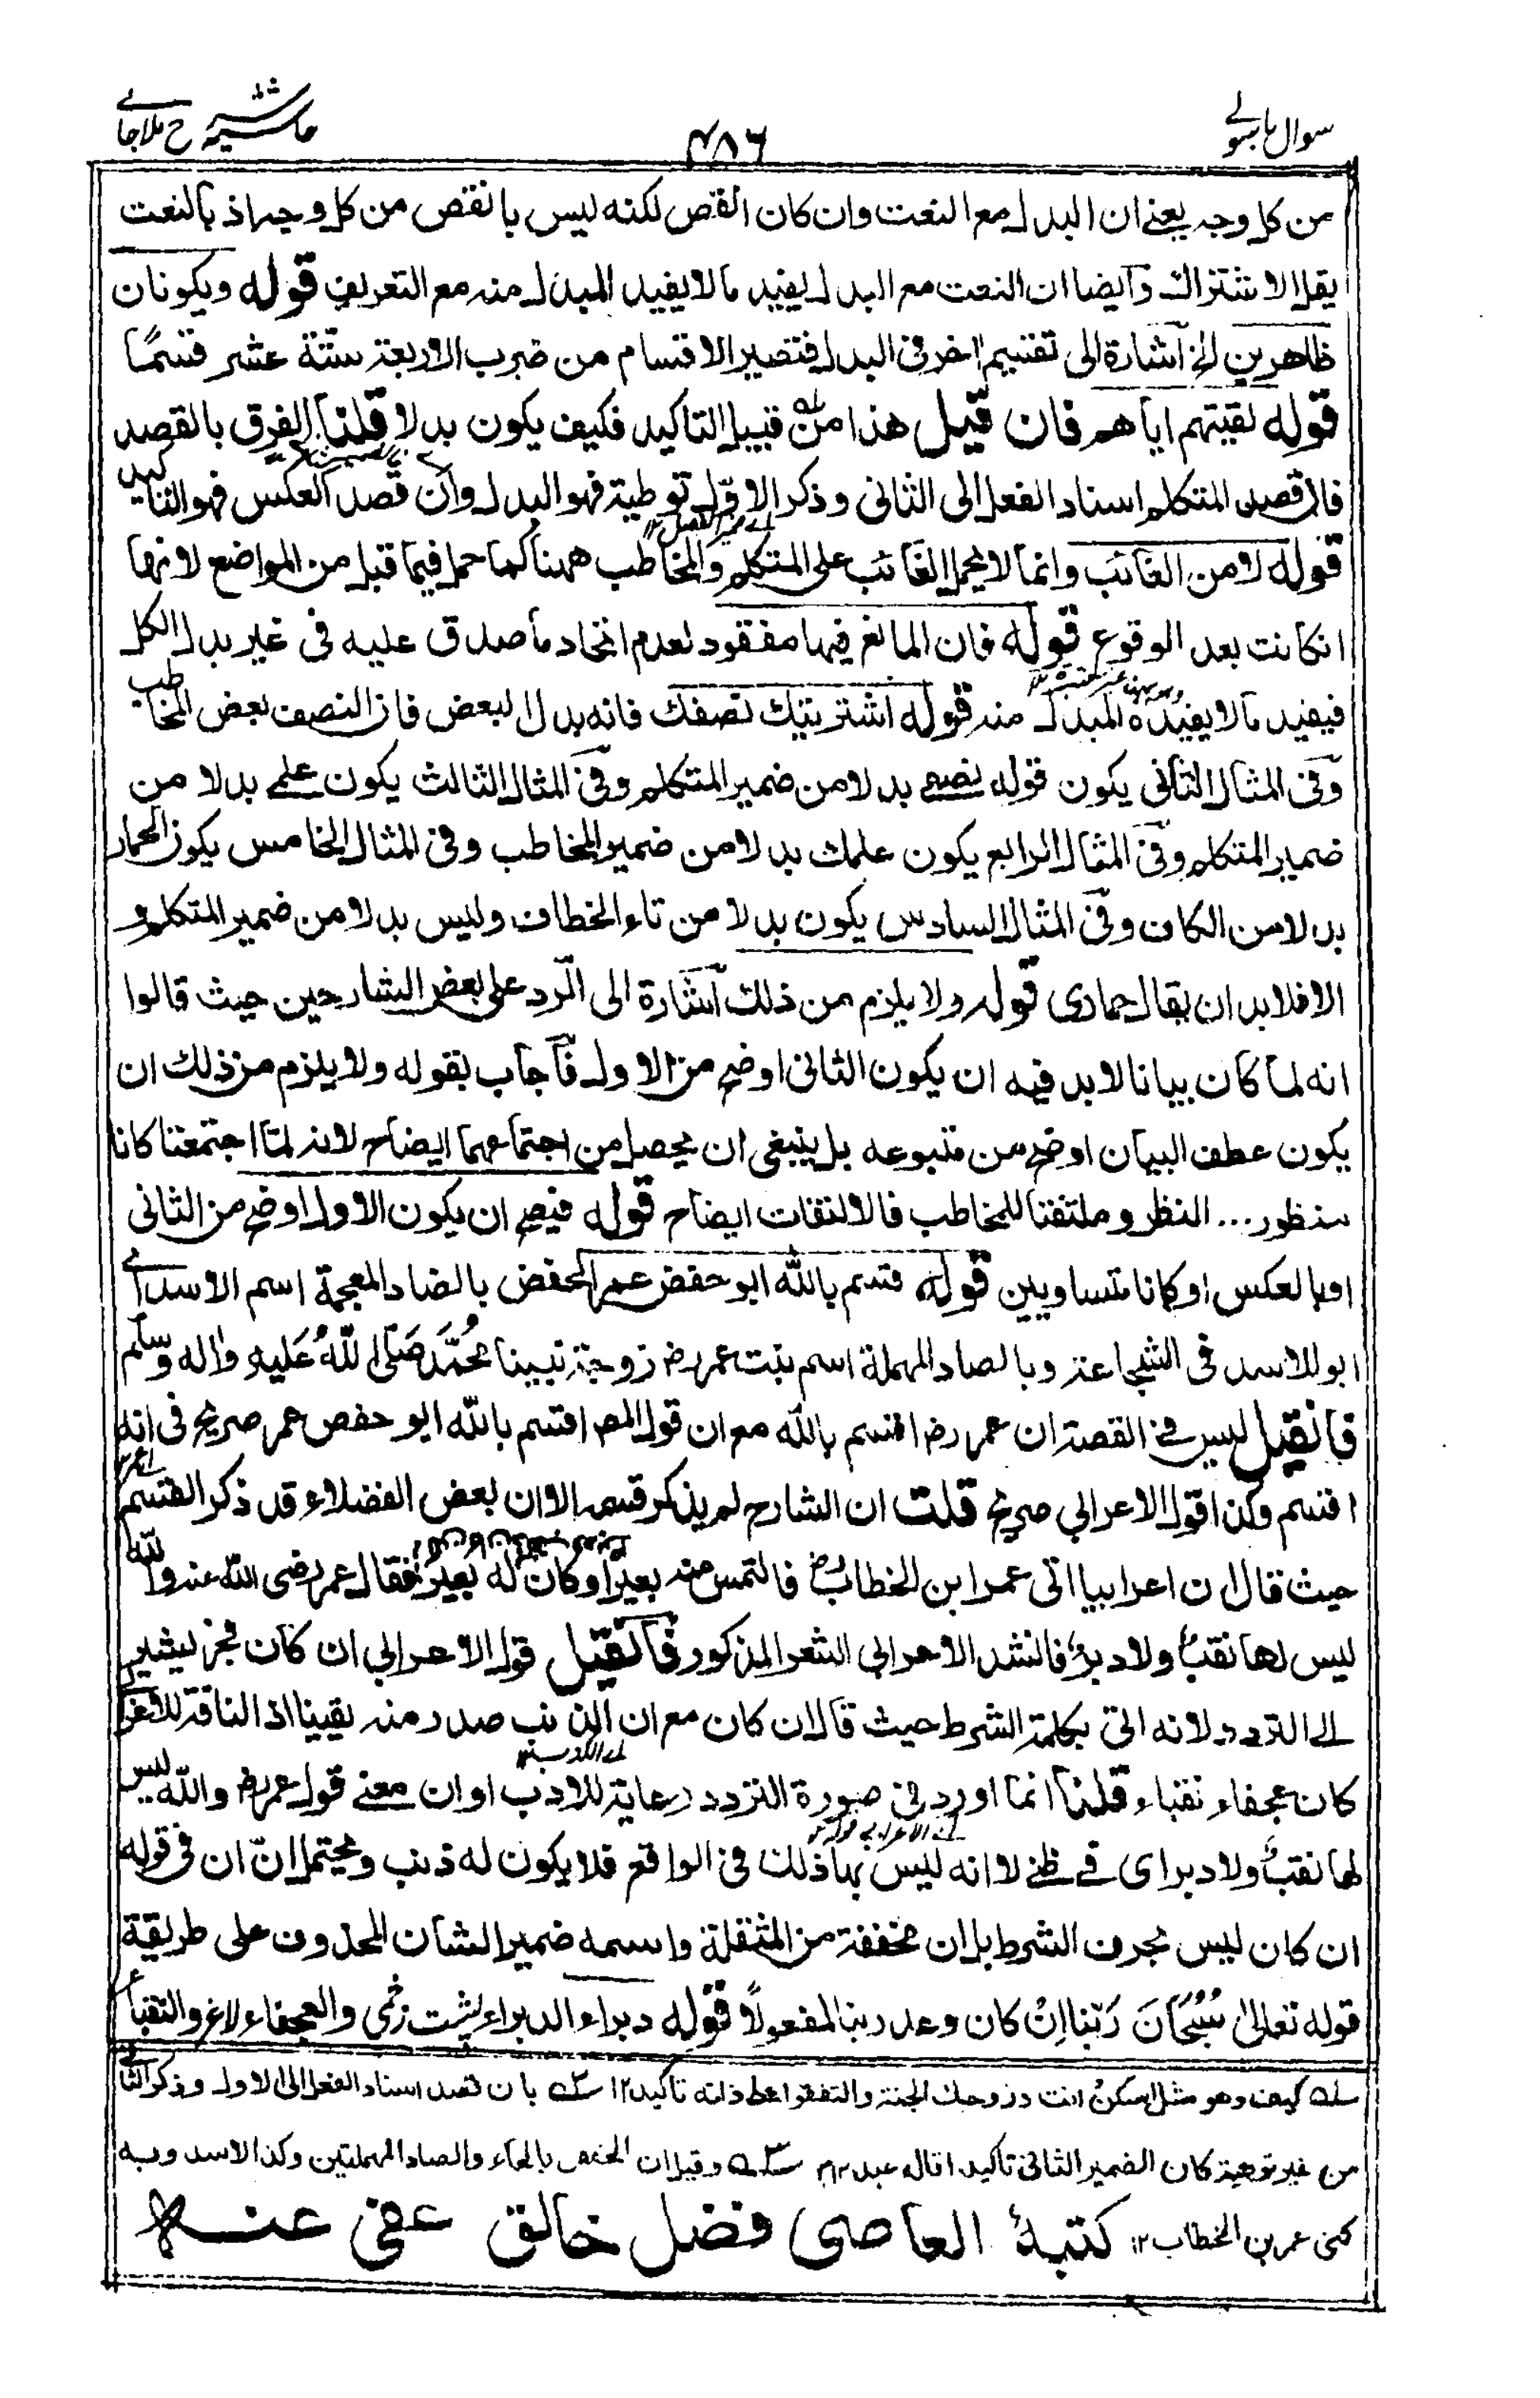 سوال باسولے
۴۸۶
حاشیہ ح ملاجامے
من كل وجه يعنے ان البدل مع النعت وان كان انقص لكنه ليس بانقص من كل وجه اذ بالنعت
يقل الاشتراك وايضا ان النعت مع البدل يفيد ما لا يفيد المبدل منه مع التعريف قوله ويكونان
ظاهرين الخ اشارة الى تقسيم اخر فى البدل فتصير الاقسام من ضرب الاربعة ستة عشر قسمًا
قوله لقيتهم اياهم فان قيل هذا من قبيل التاكيد فكيف يكون بدلا قلنا الفرق بالقصد
فان قصد المتكلم اسناد الفعل الى الثانى وذكر الاول توطية فهو البدل وان قصد العكس فهو التاكيد
قوله لا من الغائب وانما لا يحمل الغائب على المتكلم والمخاطب ههنا كما حمل فيما قبل من المواضع لانها
انكانت بعد الوقوع قوله فان المانع فيها مفقود لعدم اتحاد ما صدق عليه فى غير بدل الكل
فيفيد ما لا يفيده المبدل منه قوله اشتريتك نصفك فانه بدل البعض فان النصف بعض المخاطب
وفى المثال الثانى يكون قوله نصفے بدلا من ضمير المتكلم وفى المثال الثالث يكون علمے بدلا من
ضمير المتكلم وفى المثال الرابع يكون علمك بدلا من ضمير المخاطب وفى المثال الخامس يكون الحمار
بدلا من الكاف وفى المثال السادس يكون بدلا من تاء الخطاف وليس بدلا من ضمير المتكلم و
الا فلا بد ان يقال حمارى قوله ولا يلزم من ذلك اشارة الى الرد على بعض الشارحين حيث قالوا
انه لما كان بيانا لا بد فيه ان يكون الثانى اوضح من الاول فاجاب بقوله ولا يلزم من ذلك ان
يكون عطف البيان اوضح من متبوعه بل ينبغى ان يحصل من اجتماعهما ايضاح لانه لما اجتمعنا كانا
منظور... النظر وملتفتا للمخاطب فالالتفات ايضاح قوله فيصح ان يكون الاول اوضح من الثانى
او بالعكس او كانا متساويين قوله قسم بالله ابو حفض عمر الحفض بالضاد المعجمة اسم الاسد اے
ابو للاسد فى الشجاعة وبالصاد المهملة اسم بنت عمر رض زوجة نبينا مُحَمَّد صَلَّى اللّٰهُ عَلَيهِ واٰله وسلم
فانقيل ليس فے القصة ان عمر رض اقسم بالله مع ان قول المصـ اقسم بالله ابو حفص عمر صريح فى انه
اقسم وكذا قول الاعرابي صريح قلت ان الشارح لم يذكر قسمه الا ان بعض الفضلاء قد ذكر القسم
حيث قال ان اعرابيا اتى عمر ابن الخطاب رض فالتمس منه بعيرًا وكان له بعير فقال عمر رضى الله عنه والله
ليس لها نقبٌ ولا دبرٌ فانشد الاعرابي الشعر المذكور فانقيل قول الاعرابي ان كان فجر ليشير
الے التردد لانه اتى بكلمة الشرط حيث قال ان كان مع ان الذنب صدر منه يقينا اذ الناقة للاعرا
كان عجفاء نقباء قلنا انما اورد فى صورة التردد رعاية للادب او ان معنے قول عمر رض والله ليس
لها نقبٌ ولا دبر اى فے ظنے لا انه ليس بها ذلك فى الواقع فلا يكون له ذنب ويحتمل انّ ان فى قوله
ان كان ليس بحرف الشرط بل ان مخففة من المثقلة واسمه ضمير الشان المحذوف على طريقة
قوله تعالىٰ سُبْحَانَ رَبّنا اِنْ كان وعد ربنا لمفعولاً قوله دبراء الدبراء پشت زخمى والعجفاء لاغر والنقباء
سله كيف وهو مثل اسكن انت وزوجك الجنة والتفقوا على ذاته تاكيد ١٢ سله بان قصد اسناد الفعل الى الاول وذكر الثانى
من غير توطية كان الضمير الثانى تاكيد اقاله عبد ١٢ سله وقيل ان الحفص بالحاء والصاد المهملتين وكذا الاسد وبه
كنى عمر بن الخطاب ١٢ كتبهٔ العاصى فضل خالق عفى عنه